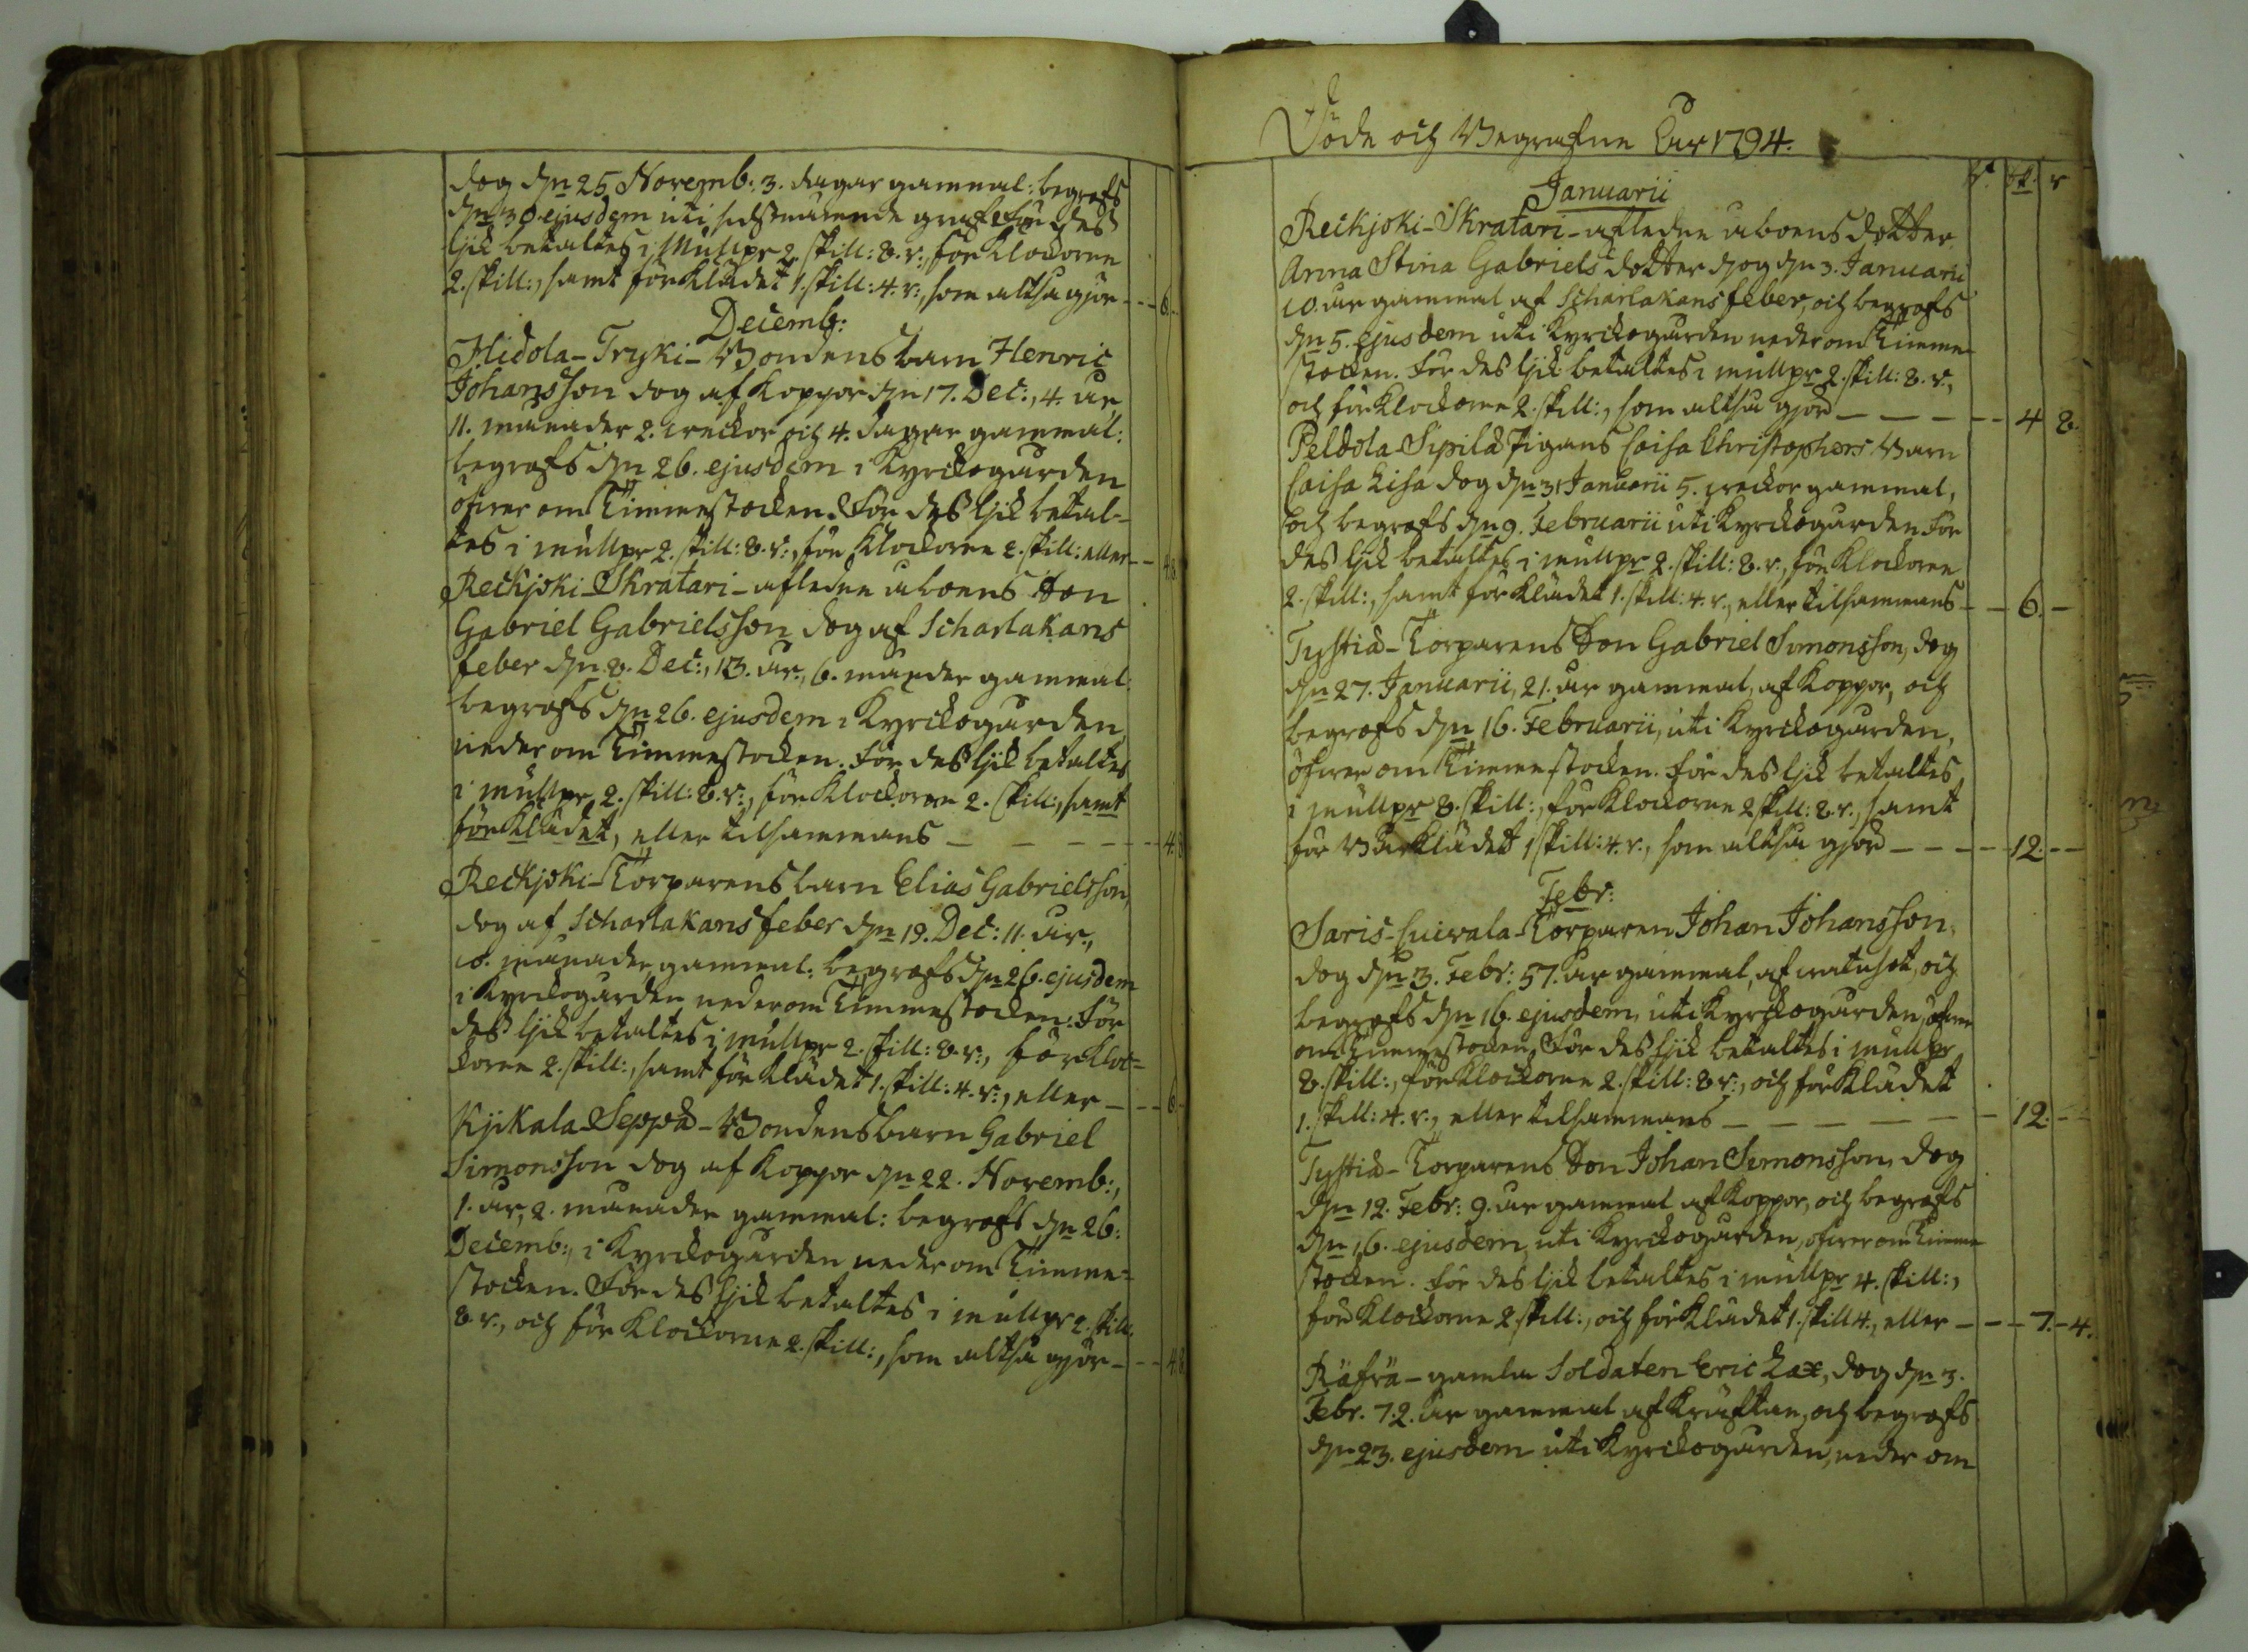 dog d:n 25 Novemb: 3. dagar gammal: begrofs
d:n 30 ejusdem uti sidstnämnde graf. För des
lijk betaltes i Mullpr 2. skill: 8. r:, för Klockorne
2. skill:, samt för Klädet 1. skill: 4. r:, som altså gjör - - - 6. -
Decemb:
Hidola-Tryki-Bondens barn Henric
Johansson dog af Koppor d:n 17. Dec:, 4. år,
11. månader 2. weckor och 4. dagar gammal:
begrofs d:n 26. ejusdem i Kyrckogården
öfwer om Timmestocken. För des lijk betal=
tes i mullpr 2. skill: 8. r:, för Klockorne 2. skill: eller - - 4. 8.
Reckjoki-Skratari-afledne åboens Son
Gabriel Gabrielsson dog af Scharlakans
feber d:n 8. Dec:, 13. år, 6. månader gammal:
begrofs d:n 26. ejusdem i Kyrckogården,
neder om Timmestocken. För des lijk betaltes
i mullpr 2. skill: 8. r:, för Klockorne 2. skill:, samt
för Klädet, eller tilsammans - - - - - 4. 8
Reckjoki-Torparens barn Elias Gabrielsson,
dog af Scharlakans feber d:n 19. Dec: 11. år,
10. månader gammal: begrofs d:n 26. ejusdem
i Kyrckogården neder om Timmestocken: För
des lijk betaltes i mullpr 2. skill: 8. r:, för Kloc=
korne 2. skill:, samt för Klädet 1. skill: 4. r:, eller - - - 6. -
Kjikala-Seppä-Bondens barn Gabriel
Simonsson dog af Koppor d:n 22. Novemb:,
1. år, 2. månader gammal: begrofs d:n 26:
Decemb:, i Kyrckogården neder om Timme=
stocken. För des lijk betaltes i mullpr 2. skill:
8. r:, och för Klockorne 2. skill:, som altså gjör - - - 4. 8
Döde och Begrafne År 1794.
Januarii
Reckjoki-Skratari-afledne åboens dotter
Anna Stina Gabriels dotter dog d:n 3. Januarii
10. år gammal af Scharlakans feber, och begrofs
d:n 5. ejusdem uti Kyrckogården neder om Timme
stocken. För des lijk betaltes i mullpr 2. skill: 8. r:,
och för Klockorne 2. skill:, som altså gjord - - - - - 4. 8.
Peldola-Sipilä Pigans Caisa Christophers Barn
Caisa Lisa dog d:n 31 Januarii 5. weckor gammal,
och begrofs d:n 9. Februarii uti Kyrckogården. För
des lijk betaltes i mullpr 2. skill: 8. r:, för Klockorne
2. skill:, samt för Klädet 1. skill: 4. r:, eller tilsammans - - 6. -
Tystiä-Torparens Son Gabriel Simonsson, dog
d:n 27. Januarii, 21. år gammal, af Koppor, och
begrofs d:n 16. Februarii, uti Kyrckogården,
öfwer om Timmestocken. För des lijk betaltes,
i mullpr 8. skill:, för Klockorne 2 skill: 8. r:, samt
för Bårklädet 1 skill: 4. r:, som altså gjord - - - - 12. - -
Febr:
Saris-Cuivala-Torparen Johan Johansson,
dog d:n 3. Febr: 57. år gammal, af watusot, och
begrofs d:n 16. ejusdem, uti Kyrckogården, öfwer
om Timmestocken. För des lijk betaltes i mullpr
8. skill:, för Klockorne 2. skill: 8 r:, och för Klädet
1. skill: 4. r:, eller tilsammans - - - - - - 12. - -
Tystiä-Torparens Son Johan Simonsson, dog
d:n 12. Febr: 9. år gammal af Koppor, och begrofs
d:n 16. ejusdem, uti Kyrckogården, öfwer om Timme
stocken. För des lijk betaltes i mullpr 4. skill:,
för Klockorne 2. skill:, och för Klädet 1. skill 4., eller - - - 7. - 4.
Räfrä-gamla Soldaten Eric Lax, dog d:n 3.
Febr. 72. år gammal af Kräftan, och begrofs
d:n 23. ejusdem uti Kyrckogården, neder om